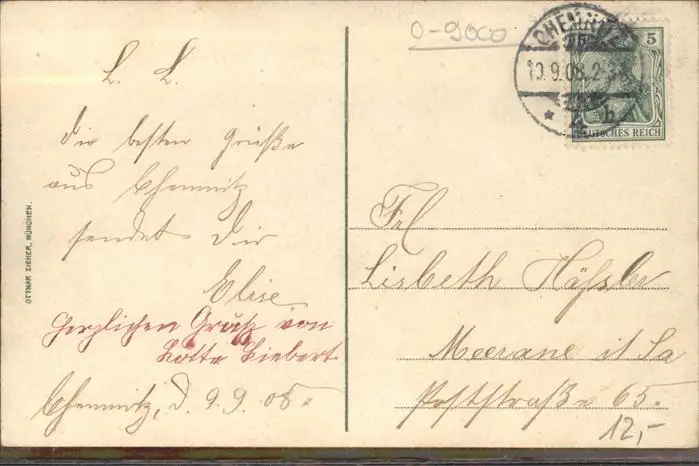 0-9000
CHEMNITZ
10.9.08.2-3
* 1 b
5
DEUTSCHES REICH
L. L.
Die besten Grüße
aus Chemnitz
sendet Dir
Elise
Herzlichen Gruß von
Lotte Liebert
Chemnitz, d. 9.9.08.
OTTMAR ZIEHER, MÜNCHEN.
Frl
Lisbeth Häßler
Meerane i/ Sa
Poststraße 65.
12,-